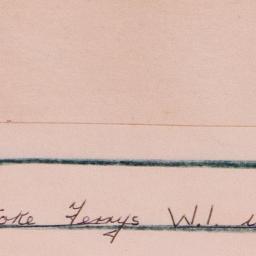 oke Ferrys W.I.